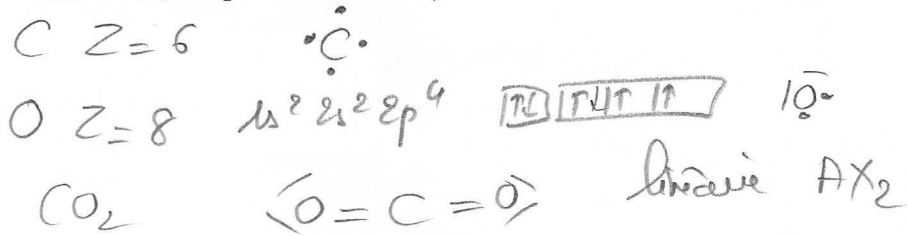 C Z=6 •C•
O Z=8 1s² 2s² 2p⁴ [↑↓] [↑↓|↑|↑] |O•
CO₂ ⟨O=C=O⟩ linéaire AX₂